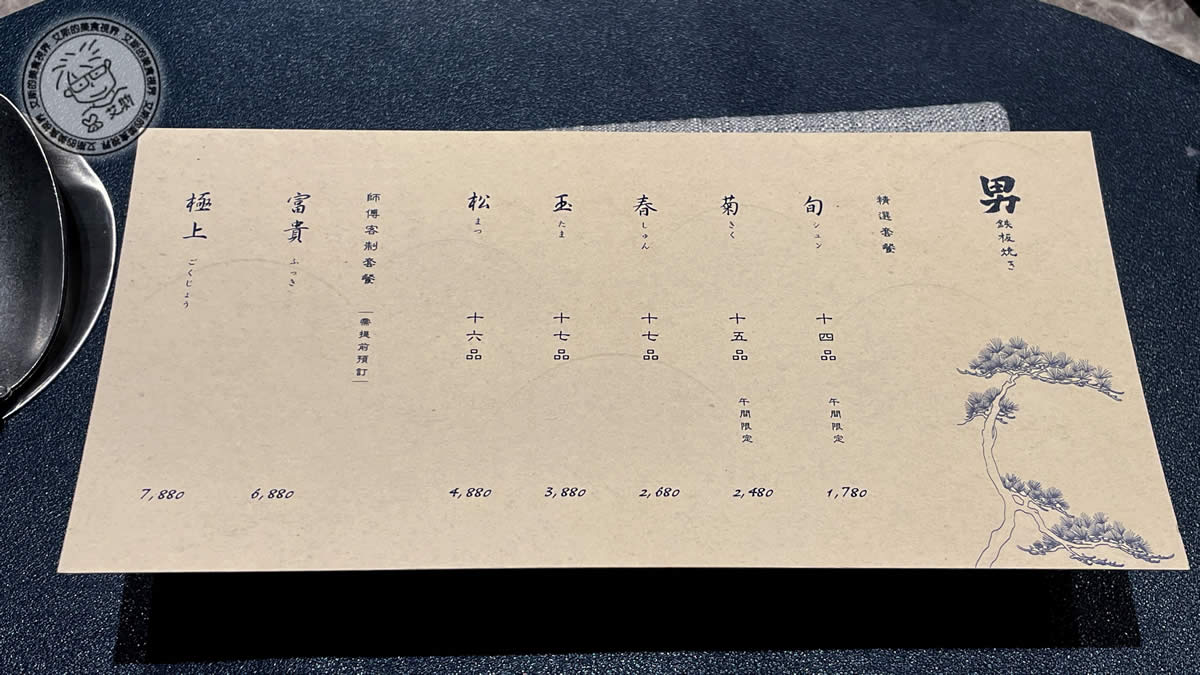 男
鉄板焼き
精選套餐
旬 シュン
十四品
午間限定
1,780
菊 きく
十五品
午間限定
2,480
春 しゅん
十七品
2,680
玉 たま
十七品
3,880
松 まつ
十六品
4,880
師傅客制套餐
需提前預訂
富貴 ふっき
6,880
極上 ごくじょう
7,880
艾斯的美食視界 艾斯的美食視界 艾斯的美食視界 艾斯的美食視界
艾斯